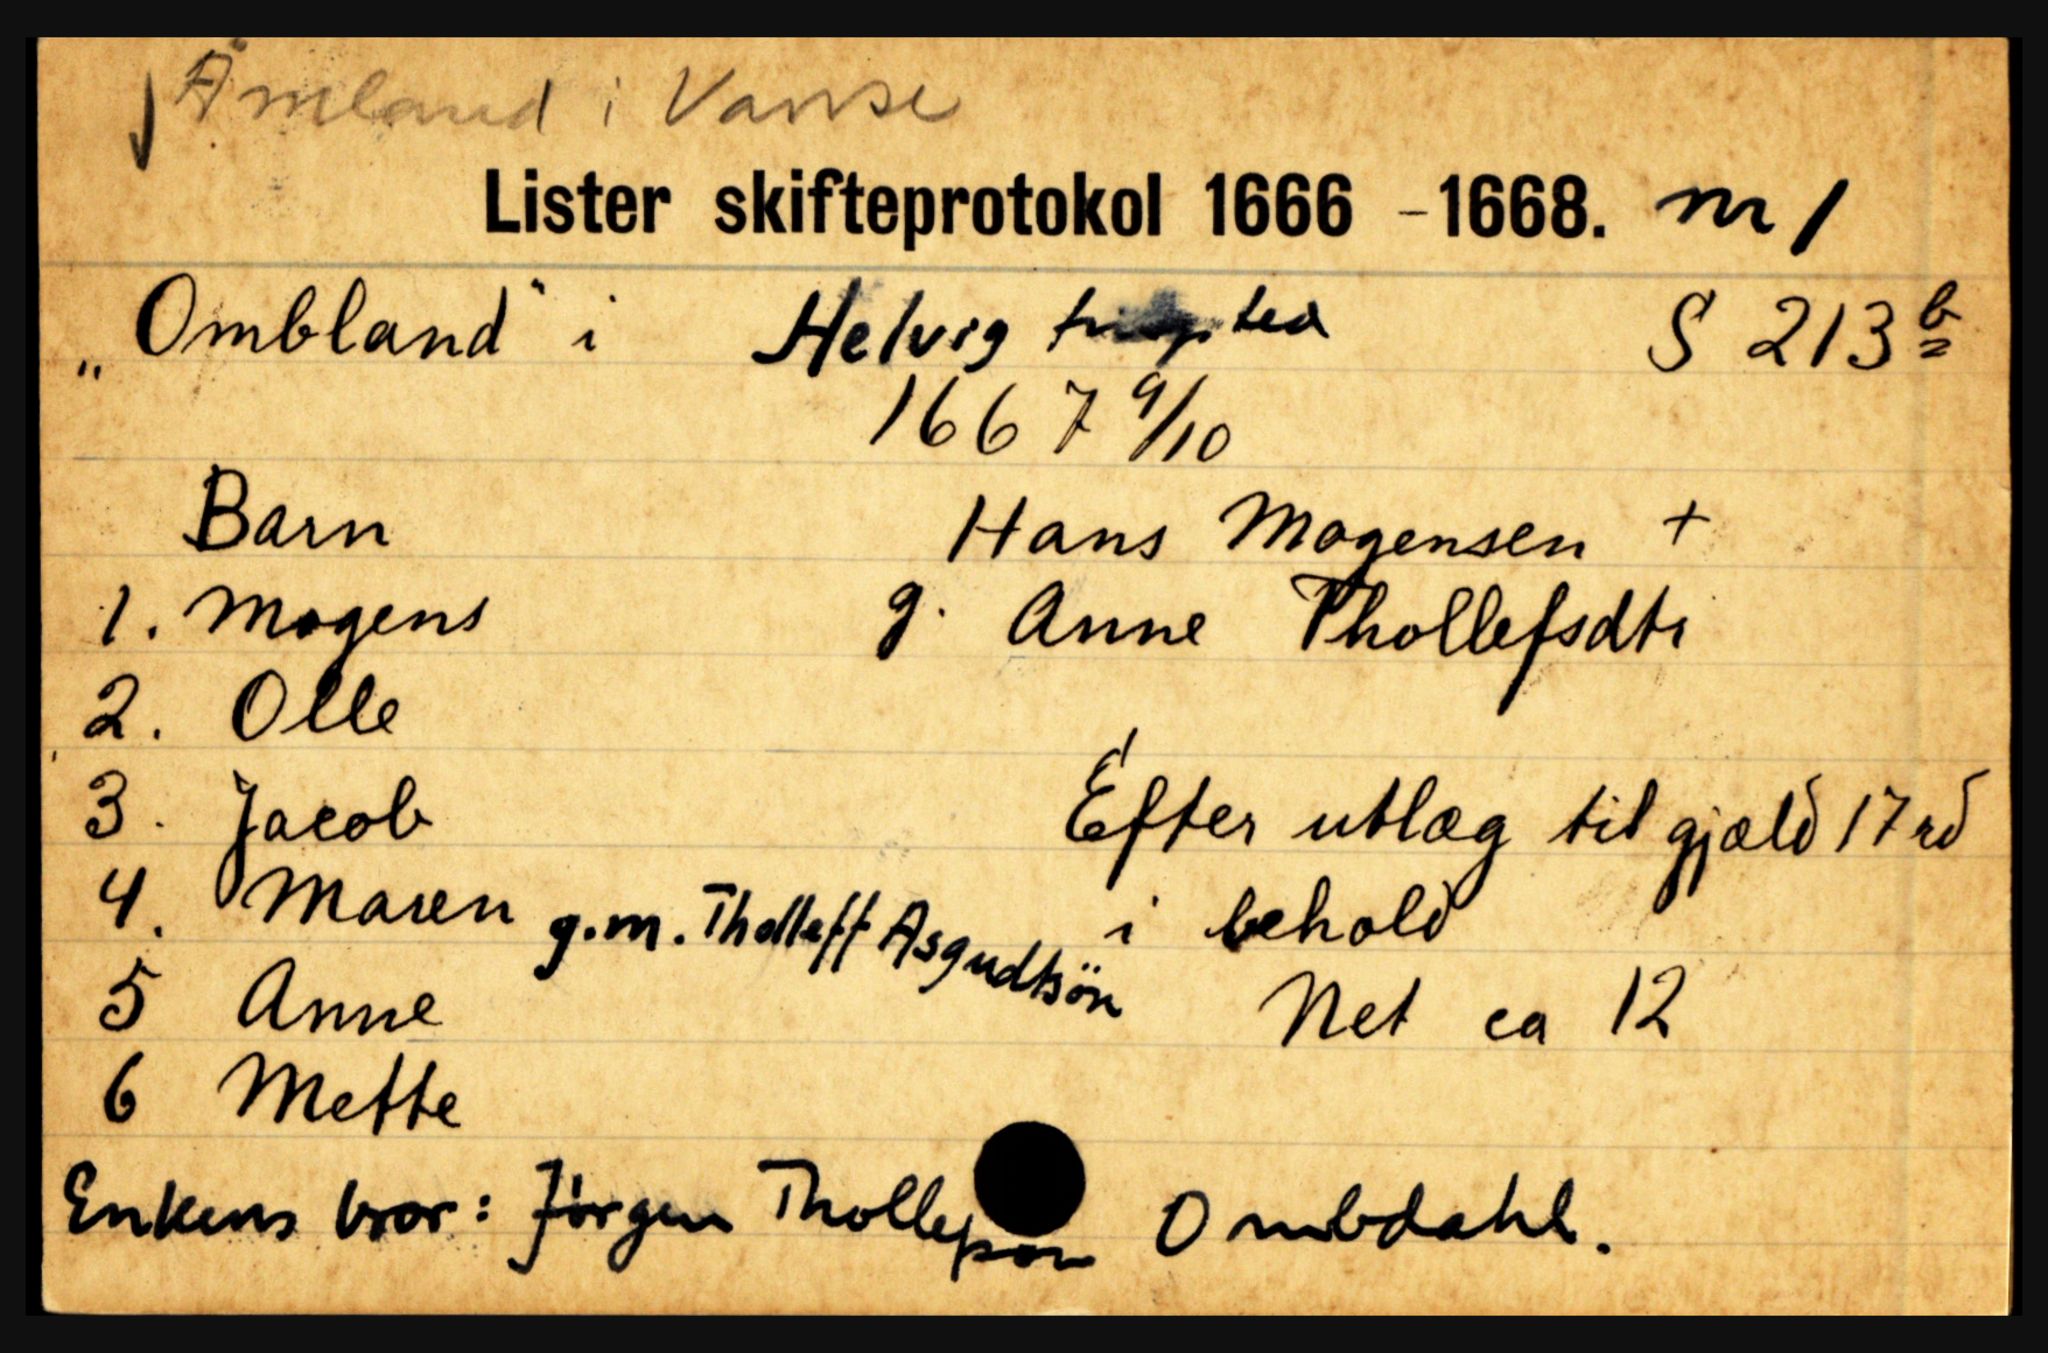 Åmland i Vanse
Lister skifteprotokol 1666 - 1668. nr 1
„Ombland" i Helvig S 213 b
1667 9/10
Barn Hans Mogensen +
1. Mogens g. Anne Thollefsdtr
2. Olle
3. Jacob Efter utlæg til gjæld 17 rd
4. Maren g.m. Tholleff Asgudtsön i behold
5 Anne Net ca 12
6 Mette
Enkens bror: Jörgen Thollepsön Ombdahl.